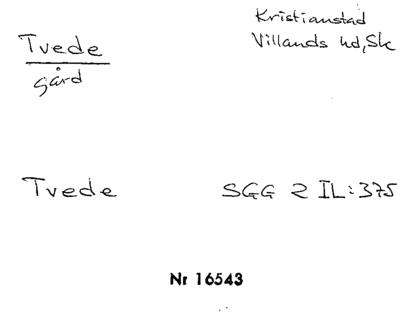 Tvede
gård
Kristianstad
Villands hd, Sk
Tvede SGG 2 IL:375
Nr 16543